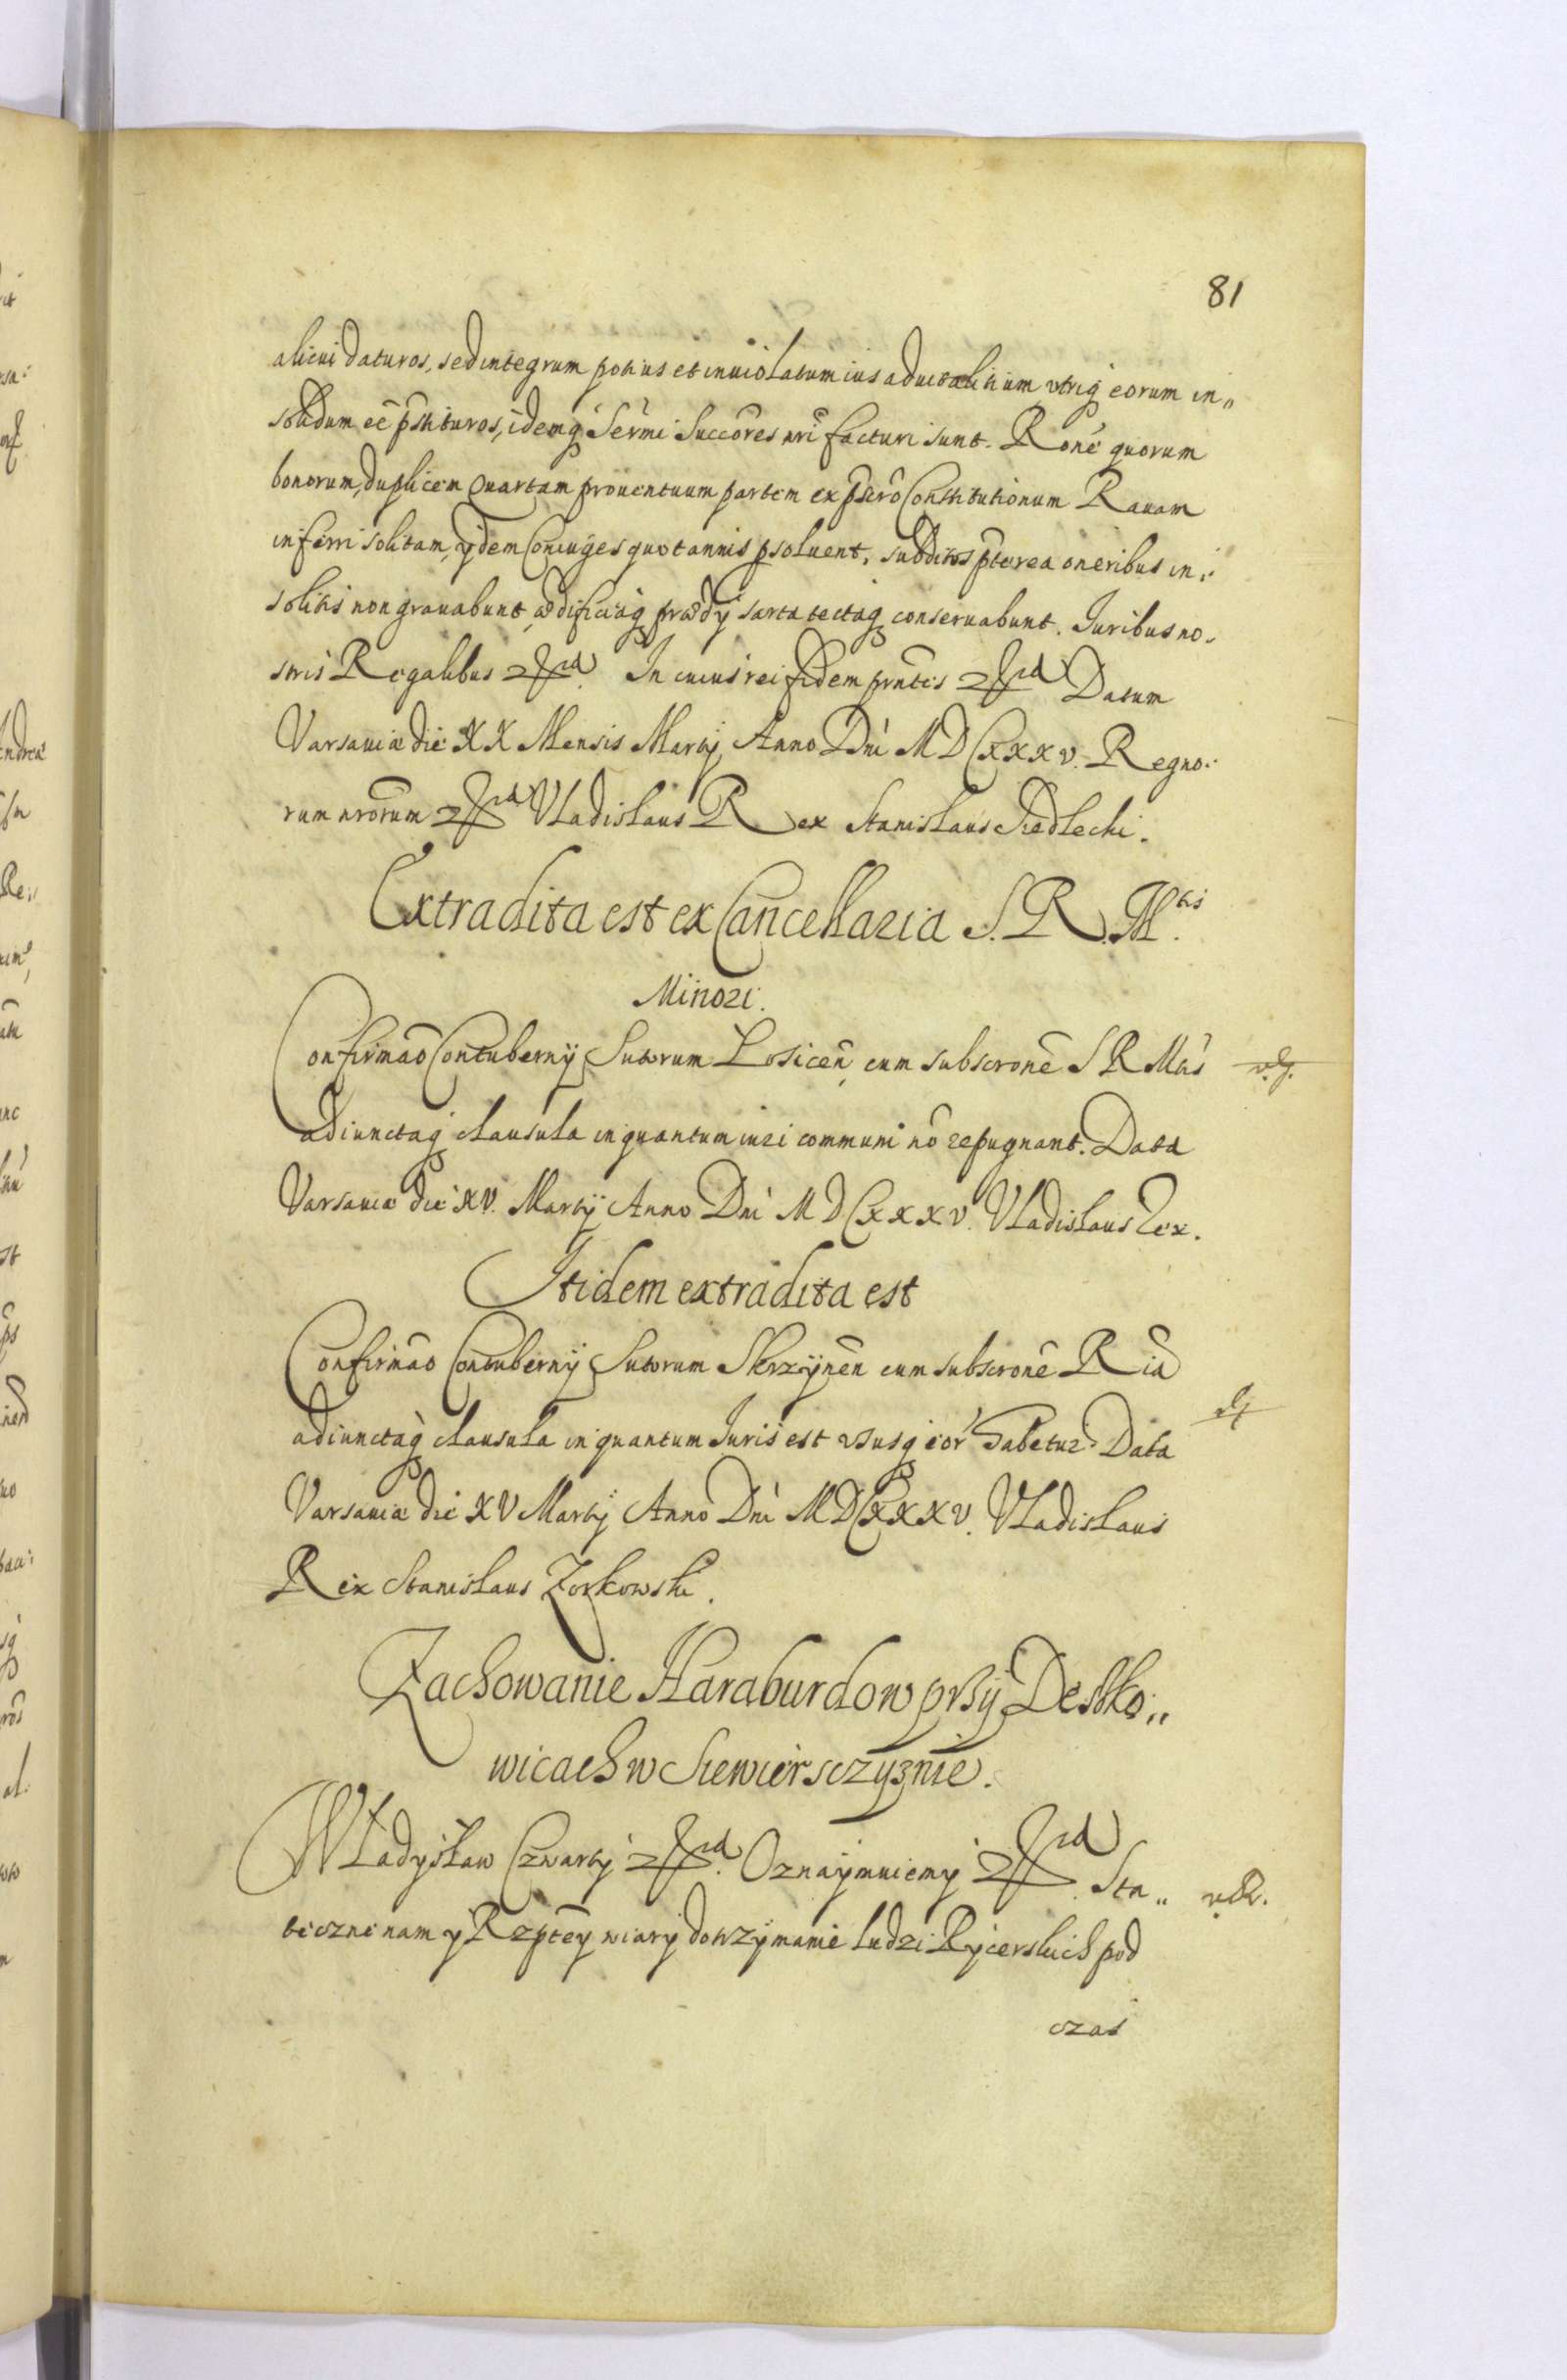 81
alicui daturos, sed integrum potius et inuiolatum ius aduitalitium vtriq eorum in„
solidum eē pstituros, idemq Sermi Succores nri facturi sunt. Rone quorum
bonorum, duplicem Quartam prouentuum partem ex pscro Constitutionum Rauam
inferri solitam, ydem Coniuges quotannis psoluent, subditos pterea oneribus in„
solitis non grauabunt, ædificiaq prædy sarta tectaq conseruabunt. Juribus no„
stris Regalibus In cuius rei fidem pntes Datum
Varsauiæ die XX Mensis Martÿ Anno Dni MDCXXXV. Regno„
rum nrorum Vladislaus Rex Stanislaus Siedlecki.
Extradita est ex Cancellaria S. R. Mtis
Minori.
Confirmao Contubernÿ Sutorum Losicen, cum subscrone S R Mtis
adiunctaq clausula inquantum iuri communi nō repugnant. Data
Varsauiæ die XV. Martÿ Anno Dni MDCXXXV. Vladislaus Rex.
Itidem extradita est
Confirmao Contubernÿ Sutorum Skrzÿnen cum subscrone Ria
adiunctaq clausula inquantum Juris est vsusq eor habetur Data
Varsauiæ die XV Martÿ Anno Dni MDCXXXV. Vladislaus
Rex Stanislaus Zorkowski.
Zachowanie Haraburdow przÿ Deszko„
wicach w Siewiersczyznie.
Władysław Czwartÿ Oznaÿmuiemÿ Sta„
teczne nam y Rzptey wiarÿ dotrzÿmanie ludzi Rycerskich pod
czas